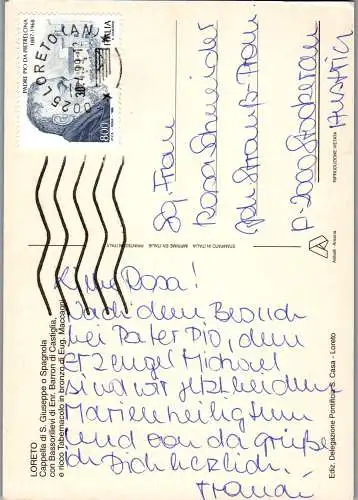 PADRE PIO DA PIETRELCINA
1887-1968
ITALIA
800
60025 LORETO (AN)
Rosa Schneider
A-2000 Stockerau
Austria
STAMPATO IN ITALIA IMPRIMÉ EN ITALIE PRINTED IN ITALY
RIPRODUZIONE VIETATA
Rosa!
Nach dem Besuch
bei Pater Pio, dem
Erzengel Michael
sind wir jetzt bei dem
Marienheiligtum
und von da grüße
ich Dich herzlich.
LORETO
Cappella di S. Giuseppe o Spagnola
con Bassorilievi di Enr. Barron di Castiglia,
e ricco Tabernacolo in bronzo di Eug. Maccagni
Ediz. Delegazione Pontificia S. Casa - Loreto